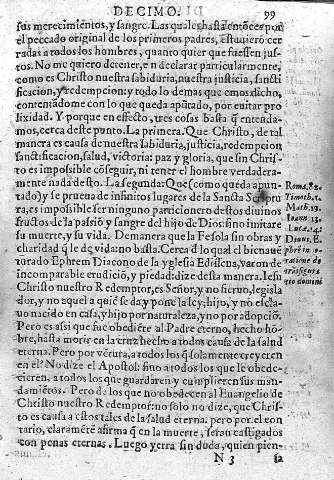 DECIMO.
99
sus merecimientos, y sangre. Las quales hasta entõces por
el peccado original de los primeros padres, estuuierõ cer
radas a todos los hombres, quanto quier que fuessen jus-
tos. No me quiero detener, e n declarar particularmente,
como es Christo nuestra sabiduria, nuestra justicia, sancti
ficacion, y redempcion: y todo lo demas que emos dicho,
contentãdome con lo que queda apũtado, por euitar pro
lixidad. Y porque en effecto, tres cosas basta q̃ entenda-
mos, cerca deste punto. La primera. Que Christo, de tal
manera es causa de nuestra sabiduria, justicia, redempcion
sanctificacion, salud, victoria: paz y gloria, que sin Chris-
to es impossible cõseguir, ni tener el hombre verdadera
mente nada desto. La segunda: Que (como queda apun-
tado) y se prueua de infinitos lugares de la Sancta Scriptu
ra, es impossible ser ninguno participionero destos diuinos
fructos de la passiõ y sangre del hijo de Dios: sino imitare
su muerte, y su vida. De manera que la Fe sola sin obras y
charidad q̃ le de vida: no basta. Cerca de lo qual el bienaué
turado Ephrem Diacono de la yglesia Edissena, varon de
incomparable erudiciõ, y piedad: dize desta manera. Iesu
Christo nuestro Redemptor, es Señor, y no sieruo, legisla
dor, y no aquel a quiẽ se da y pone la ley: hijo, y no escla-
uo nacido en casa, y hijo por naturaleza, y no por adopciõ.
Pero es assi que fue obediẽte al Padre eterno, hecho hõ-
bre, hasta morir en la cruz hecho a todos causa de la salud
eterna. Pero por vẽtura, a todos los q̃ solamente creyeren
en el? No dize el Apostol: sino a todos los que le obede-
cieren, a todos los que guardaren y cumplieren sus man-
damiẽtos. Pero de los que no obedecen al Euangelio de
Christo nuestro Redemptor: no solo no dize, que Chris-
to es causa a estos tales de la salud eterna. pero por el con
tario, claramẽte afirma q̃ en la muerte, seran castigados
con penas eternas. Luego yerra sin duda, quien pien-
N 3
sa
Roma. 8.
Timoth.
Math. 19.
Ioann. 13.
Luca. 14.
Diuus. E.
phrẽ in o-
ratione de
trãsfigura
domini